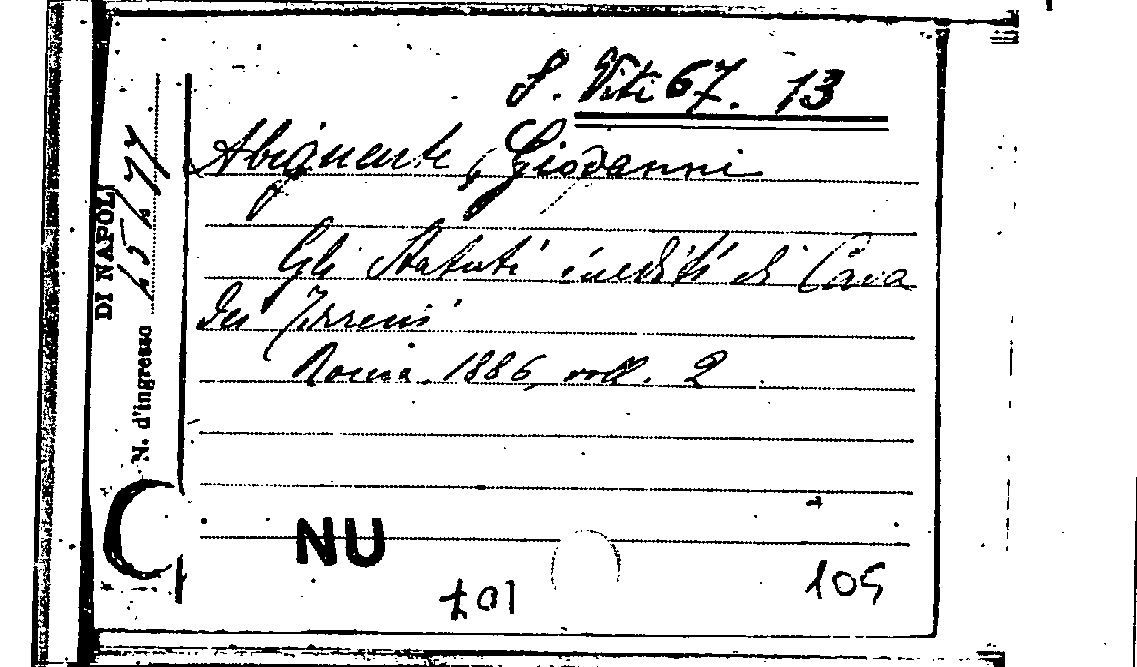 S. Viti 67. 13
Abignente, Giovanni
Gli Statuti inediti di Cava
dei Tirreni
Roma. 1886, voll. 2
DI NAPOLI
N. d'ingresso
NU
101
105